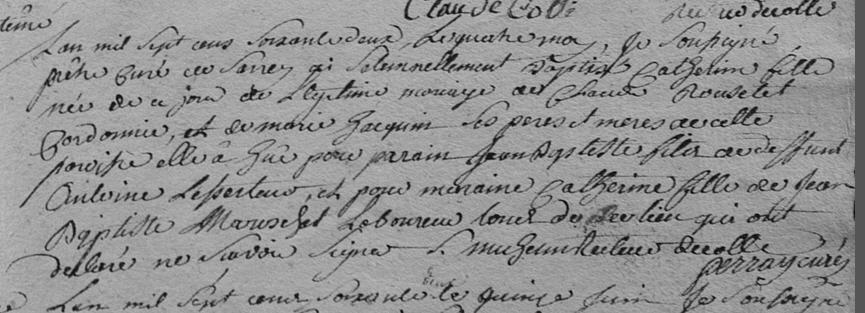 Claude Colli
tême
Lan mil Sept cens Soixante deux, Le quatre may, Je Soussigné
prêtre Curé de Sarrey ai Solennellement Baptisé Catherine fille
née de ce jour de Legitime mariage de Claude Rouselet
Cordonnie, et de marie Jacquin Ses peres et meres de cette
paroisse elle â Eüe pour parain Jean Baptiste fils de deffunt
Antoine Lesserteur, et pour maraine Catherine fille de Jean
Baptiste Mareschet Laboureur tous de de lieu qui ont
declaré ne Scavoir Signer recteur decolle
perray curés
Lan mil Sept cens Soixante le quinze Juin Je Soussigné